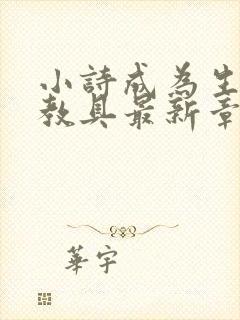 小詩成為生
教具最新章
華宇